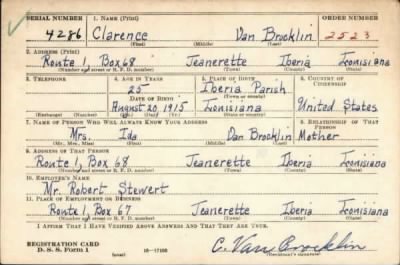 SERIAL NUMBER 1. NAME (Print) ORDER NUMBER
4286 Clarence Van Brocklin 2523
(First) (Middle) (Last)
2. ADDRESS (Print)
Route 1, Box 68 Jeanerette Iberia Louisiana
(Number and street or R. F. D. number) (Town) (County) (State)
3. TELEPHONE 4. AGE IN YEARS 5. PLACE OF BIRTH 6. COUNTRY OF CITIZENSHIP
25 Iberia Parish
DATE OF BIRTH (Town or county)
August 20 1915 Louisiana United States
(Exchange) (Number) (Mo.) (Day) (Yr.) (State or country)
7. NAME OF PERSON WHO WILL ALWAYS KNOW YOUR ADDRESS 8. RELATIONSHIP OF THAT PERSON
Mrs. Ida Van Brocklin Mother
(Mr., Mrs., Miss) (First) (Middle) (Last)
9. ADDRESS OF THAT PERSON
Route 1, Box 68 Jeanerette Iberia Louisiana
(Number and street or R. F. D. number) (Town) (County) (State)
10. EMPLOYER'S NAME
Mr. Robert Stewert
11. PLACE OF EMPLOYMENT OR BUSINESS
Route 1, Box 67 Jeanerette Iberia Louisiana
(Number and street or R. F. D. number) (Town) (County) (State)
I AFFIRM THAT I HAVE VERIFIED ABOVE ANSWERS AND THAT THEY ARE TRUE.
REGISTRATION CARD
D. S. S. Form 1 16-17105 C. Van Brocklin
(over) (Registrant's signature)